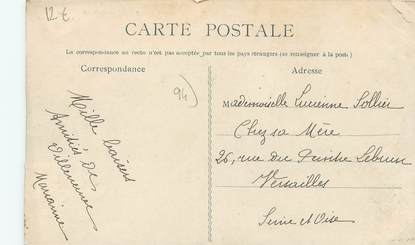 12 €
CARTE POSTALE
La correspondance au recto n'est pas acceptée par tous les pays étrangers (se renseigner à la poste)
Correspondance
Adresse
94
Mille baisers
Amitiés de
Villeneuve
Marianne
Mademoiselle Lucienne Sollier
Chez sa Mère
26, rue du Peintre Lebrun
Versailles
Seine et Oise